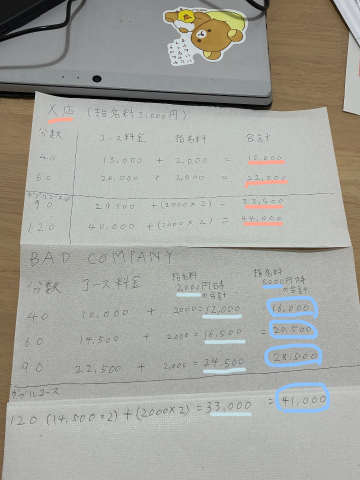 X店 (指名料2,000円)
分数 コース料金 指名料 合計
40 13,000 + 2,000 = 15,000
60 20,000 + 2,000 = 22,000
ダブルコース
90 29,500 + (2000×2) = 33,500
120 40,000 + (2000×2) = 44,000
BAD COMPANY
分数 コース料金 指名料 2,000円時の合計 指名料 6,000円時の合計
40 10,000 + 2000 = 12,000 16,000
60 14,500 + 2,000 = 16,500 = 20,500
90 22,500 + 2,000 = 24,500 28,500
ダブルコース
120 (14,500×2) + (2000×2) = 33,000 = 41,000